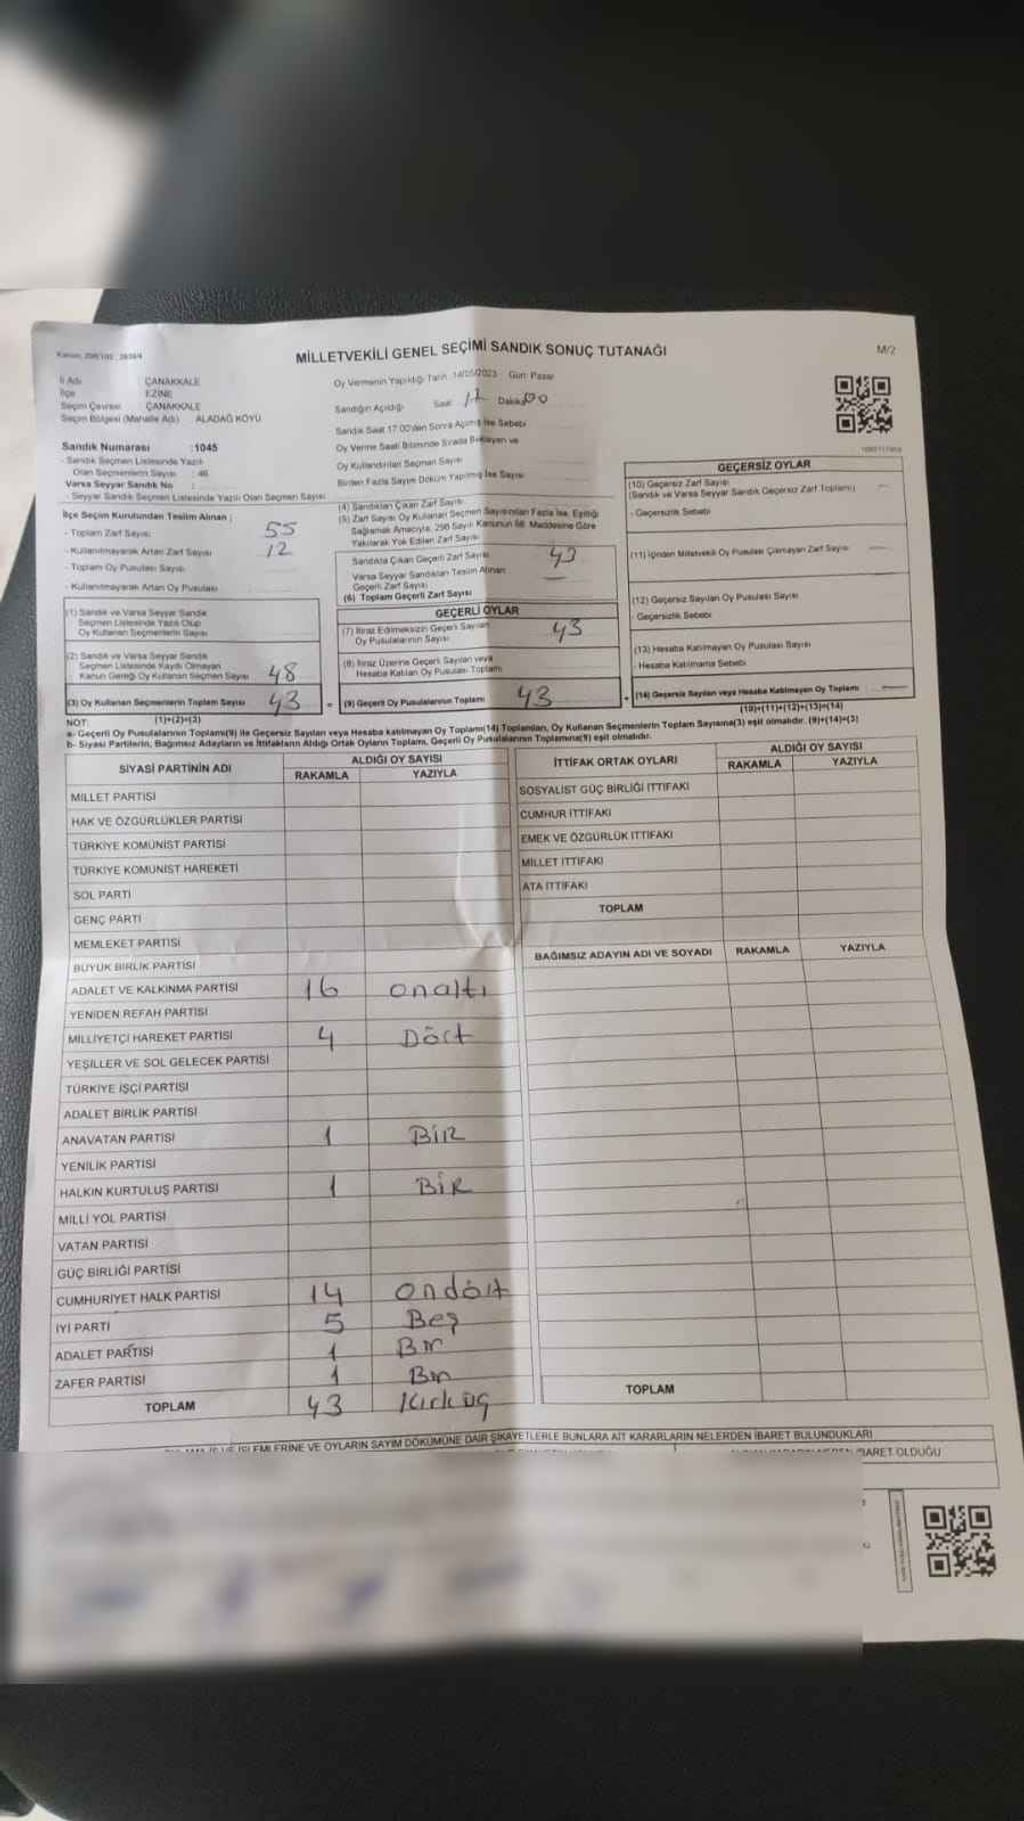 MİLLETVEKİLİ GENEL SEÇİMİ SANDIK SONUÇ TUTANAĞI
M/2
İl Adı : ÇANAKKALE
İlçe : EZİNE
Seçim Çevresi : ÇANAKKALE
Seçim Bölgesi (Mahalle Adı) ALADAĞ KÖYÜ
Oy Vermenin Yapıldığı Tarih :14/05/2023 Gün: Pazar
Sandığın Açıldığı Saat: Dakika 00
Sandık Saat 17:00'den Sonra Açılmış İse Sebebi
Oy Verme Saati Bitiminde Sırada Bekleyen ve
Oy Kullandırılan Seçmen Sayısı
Birden Fazla Sayım Döküm Yapılmış İse Sayısı
Sandık Numarası :1045
- Sandık Seçmen Listesinde Yazılı
Olan Seçmenlerin Sayısı : 46
Varsa Seyyar Sandık No :
- Seyyar Sandık Seçmen Listesinde Yazılı Olan Seçmen Sayısı
İlçe Seçim Kurulundan Teslim Alınan ;
- Toplam Zarf Sayısı 55
- Kullanılmayarak Artan Zarf Sayısı 12
- Toplam Oy Pusulası Sayısı
- Kullanılmayarak Artan Oy Pusulası
(1) Sandık ve Varsa Seyyar Sandık
Seçmen Listesinde Yazılı Olup
Oy Kullanan Seçmenlerin Sayısı
(2) Sandık ve Varsa Seyyar Sandık
Seçmen Listesinde Kaydı Olmayan
Kanun Gereği Oy Kullanan Seçmen Sayısı 48
(3) Oy Kullanan Seçmenlerin Toplam Sayısı 43
(1)+(2)=(3)
(4) Sandıktan Çıkan Zarf Sayısı
(5) Zarf Sayısı Oy Kullanan Seçmen Sayısından Fazla İse, Eşitliği
Sağlamak Amacıyla, 298 Sayılı Kanunun 98. Maddesine Göre
Yakılarak Yok Edilen Zarf Sayısı
Sandıkta Çıkan Geçerli Zarf Sayısı 43
Varsa Seyyar Sandıktan Teslim Alınan
Geçerli Zarf Sayısı —
(6) Toplam Geçerli Zarf Sayısı
GEÇERLİ OYLAR
(7) İtiraz Edilmeksizin Geçerli Sayılan
Oy Pusulalarının Sayısı 43
(8) İtiraz Üzerine Geçerli Sayılan veya
Hesaba Katılan Oy Pusulası Toplamı
= (9) Geçerli Oy Pusulalarının Toplamı 43
GEÇERSİZ OYLAR
(10) Geçersiz Zarf Sayısı
(Sandık ve Varsa Seyyar Sandık Geçersiz Zarf Toplamı) —
- Geçersizlik Sebebi
(11) İçinden Milletvekili Oy Pusulası Çıkmayan Zarf Sayısı —
(12) Geçersiz Sayılan Oy Pusulası Sayısı
- Geçersizlik Sebebi
(13) Hesaba Katılmayan Oy Pusulası Sayısı
- Hesaba Katılmama Sebebi
+ (14) Geçersiz Sayılan veya Hesaba Katılmayan Oy Toplamı —
(10)+(11)+(12)+(13)=(14)
NOT:
a- Geçerli Oy Pusulalarının Toplamı(9) ile Geçersiz Sayılan veya Hesaba katılmayan Oy Toplamı(14) Toplamları, Oy Kullanan Seçmenlerin Toplam Sayısına(3) eşit olmalıdır. (9)+(14)=(3)
b- Siyasi Partilerin, Bağımsız Adayların ve İttifakların Aldığı Ortak Oyların Toplamı, Geçerli Oy Pusulalarının Toplamına(9) eşit olmalıdır.
SİYASİ PARTİNİN ADI
ALDIĞI OY SAYISI
RAKAMLA YAZIYLA
MİLLET PARTİSİ
HAK VE ÖZGÜRLÜKLER PARTİSİ
TÜRKİYE KOMÜNİST PARTİSİ
TÜRKİYE KOMÜNİST HAREKETİ
SOL PARTİ
GENÇ PARTİ
MEMLEKET PARTİSİ
BÜYÜK BİRLİK PARTİSİ
ADALET VE KALKINMA PARTİSİ 16 onaltı
YENİDEN REFAH PARTİSİ
MİLLİYETÇİ HAREKET PARTİSİ 4 Dört
YEŞİLLER VE SOL GELECEK PARTİSİ
TÜRKİYE İŞÇİ PARTİSİ
ADALET BİRLİK PARTİSİ
ANAVATAN PARTİSİ 1 BİR
YENİLİK PARTİSİ
HALKIN KURTULUŞ PARTİSİ 1 BİR
MİLLİ YOL PARTİSİ
VATAN PARTİSİ
GÜÇ BİRLİĞİ PARTİSİ
CUMHURİYET HALK PARTİSİ 14 ondört
İYİ PARTİ 5 Beş
ADALET PARTİSİ 1 Bir
ZAFER PARTİSİ 1 Bir
TOPLAM 43 Kırküç
İTTİFAK ORTAK OYLARI
ALDIĞI OY SAYISI
RAKAMLA YAZIYLA
SOSYALİST GÜÇ BİRLİĞİ İTTİFAKI
CUMHUR İTTİFAKI
EMEK VE ÖZGÜRLÜK İTTİFAKI
MİLLET İTTİFAKI
ATA İTTİFAKI
TOPLAM
BAĞIMSIZ ADAYIN ADI VE SOYADI RAKAMLA YAZIYLA
TOPLAM
İŞLEMLERİNE VE OYLARIN SAYIM DÖKÜMÜNE DAİR ŞİKAYETLERLE BUNLARA AİT KARARLARIN NELERDEN İBARET BULUNDUKLARI
İBARET OLDUĞU